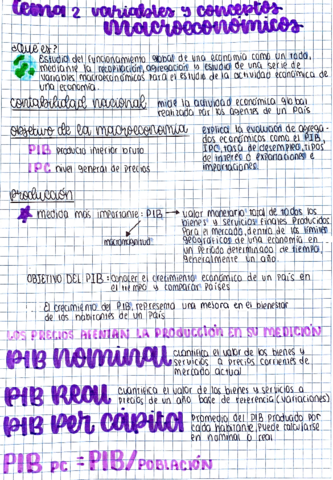 tema 2 variables y conceptos
macroeconómicos
¿Qué es?
Estudio del funcionamiento global de una economía como un todo,
mediante la recopilación, agregación y estudio de una serie de
variables macroeconómicas para el estudio de la actividad económica de
una economía.
contabilidad nacional mide la actividad económica global
realizada por los agentes de un país
objetivo de la macroeconomía explica la evolución de agrega-
dos económicos como el PIB,
IPC, tasa de desempleo, tipos
de interés o exportaciones e
importaciones.
PIB producto interior bruto
IPC nivel general de precios
producción
medida más importante: PIB → valor monetario total de todos los
bienes y servicios finales producidos
para el mercado, dentro de los límites
geográficos de una economía en
un período determinado de tiempo,
generalmente un año.
macromagnitud
OBJETIVO DEL PIB = conocer el crecimiento económico de un país en
el tiempo y comparar países
El crecimiento del PIB, representa una mejora en el bienestar
de los habitantes de un país
LOS PRECIOS AFECTAN LA PRODUCCIÓN EN SU MEDICIÓN
PIB nominal cuantifica el valor de los bienes y
servicios a precios corrientes de
mercado actual
PIB Real cuantifica el valor de los bienes y servicios a
precios de un año base de referencia (variaciones)
PIB Per cápital promedio del PIB producido por
cada habitante, puede calcularse
en nominal o real
PIB PC = PIB/POBLACIÓN